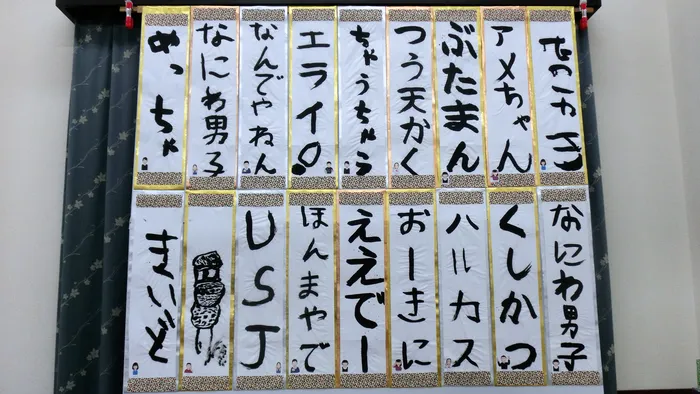 アメちゃん
ぶたまん
つう天かく
ちゃうちゃう
エライ!
なんでやねん
なにわ男子
めっちゃ
なにわ男子
くしかつ
ハルカス
おーきに
ええでー
ほんまやで
USJ
まいど